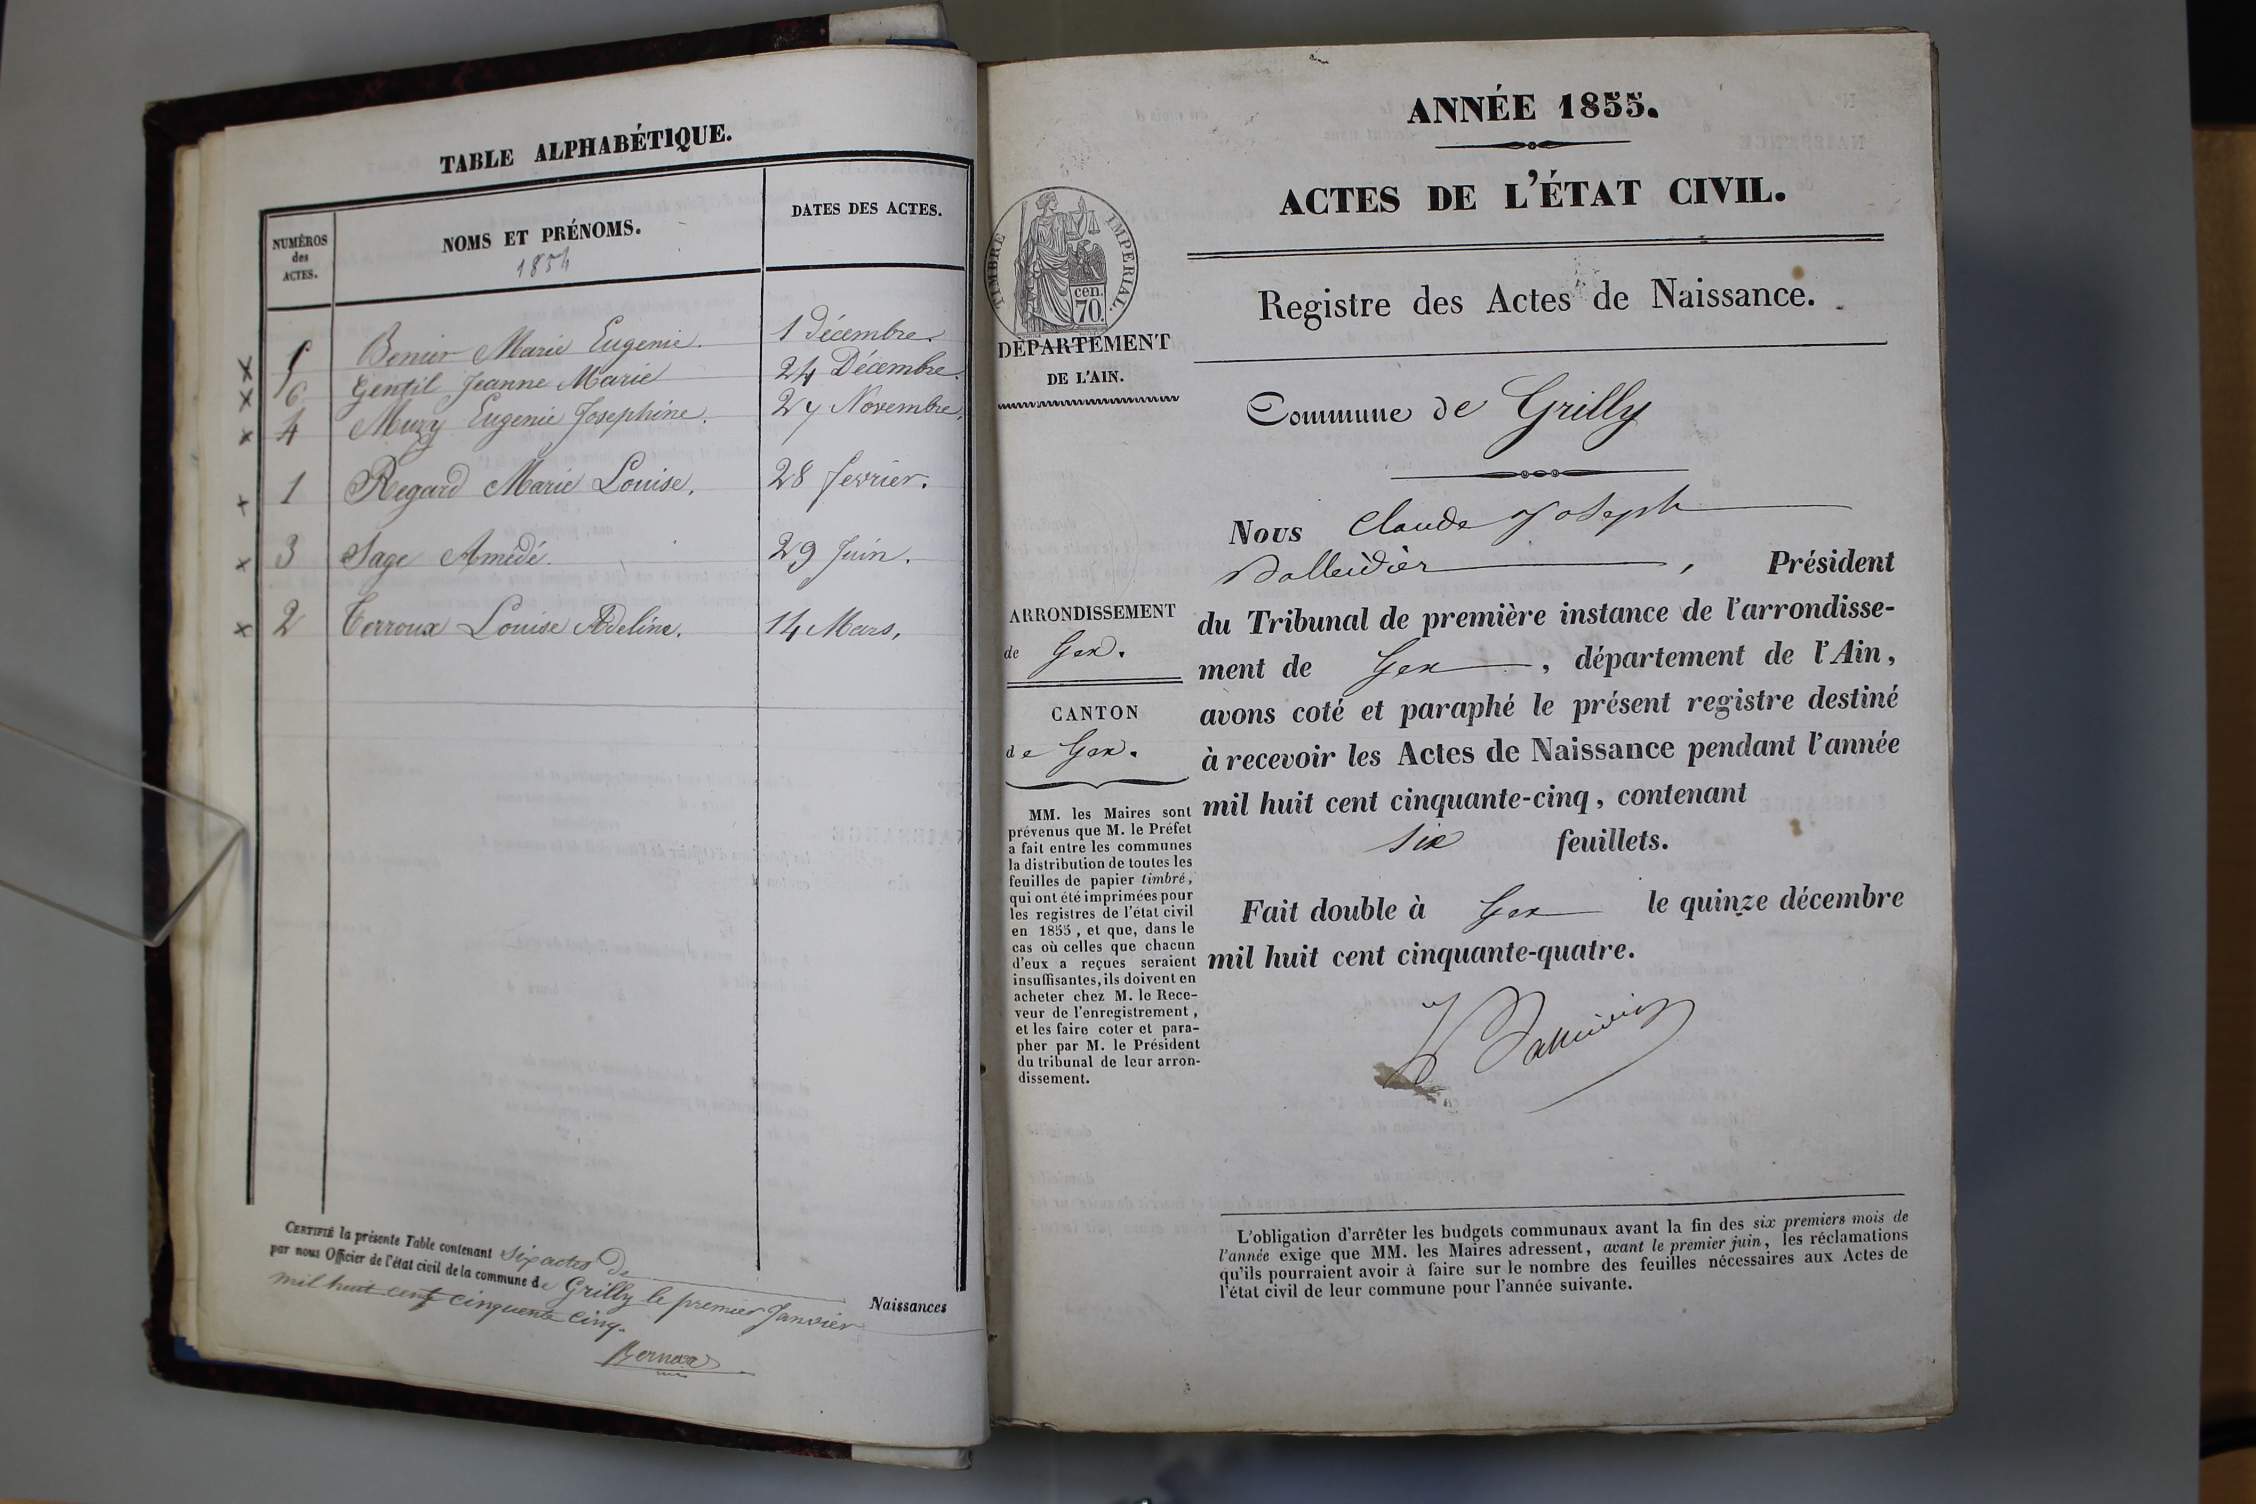 TABLE ALPHABÉTIQUE.
NUMÉROS
des
ACTES.
NOMS ET PRÉNOMS.
1854
DATES DES ACTES.
5 Benier Marie Eugenie. 1 Décembre.
6 Gentil Jeanne Marie 24 Décembre.
4 Muzy Eugenie Josephine. 27 Novembre.
1 Regard Marie Louise. 28 fevrier.
3 Sage Amédé. 29 Juin.
2 Terroux Louise Adeline. 14 Mars,
CERTIFIÉ la présente Table contenant six actes de
par nous Officier de l'état civil de la commune de Grilly le premier Janvier
mil huit cent cinquente cinq.
Naissances
ANNÉE 1855.
ACTES DE L'ÉTAT CIVIL.
Registre des Actes de Naissance.
TIMBRE IMPERIAL.
70 cen.
DÉPARTEMENT
DE L'AIN.
Commune de Grilly
Nous Claude Joseph
Dalleidier, Président
du Tribunal de première instance de l'arrondisse-
ment de Gex, département de l'Ain,
avons coté et paraphé le présent registre destiné
à recevoir les Actes de Naissance pendant l'année
mil huit cent cinquante-cinq, contenant
six feuillets.
Fait double à Gex le quinze décembre
mil huit cent cinquante-quatre.
ARRONDISSEMENT
de Gex.
CANTON
de Gex.
MM. les Maires sont
prévenus que M. le Préfet
a fait entre les communes
la distribution de toutes les
feuilles de papier timbré,
qui ont été imprimées pour
les registres de l'état civil
en 1855, et que, dans le
cas où celles que chacun
d'eux a reçues seraient
insuffisantes, ils doivent en
acheter chez M. le Rece-
veur de l'enregistrement,
et les faire coter et para-
pher par M. le Président
du tribunal de leur arron-
dissement.
L'obligation d'arrêter les budgets communaux avant la fin des six premiers mois de
l'année exige que MM. les Maires adressent, avant le premier juin, les réclamations
qu'ils pourraient avoir à faire sur le nombre des feuilles nécessaires aux Actes de
l'état civil de leur commune pour l'année suivante.